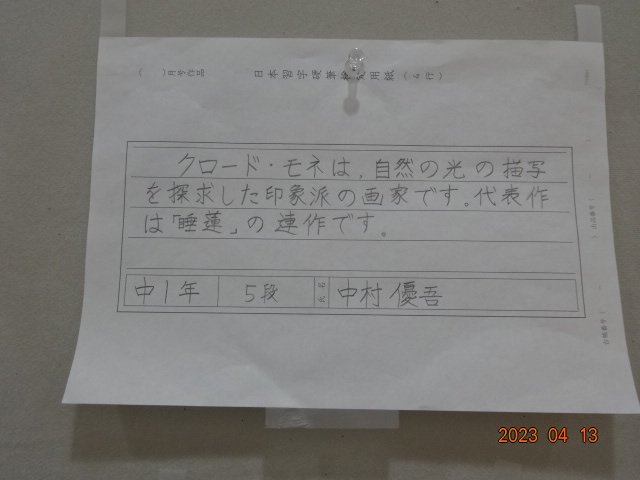 ( )月号作品
日本習字硬筆 用紙(4行)
クロード・モネは、自然の光の描写
を探求した印象派の画家です。代表作
は「睡蓮」の連作です。
中1年 5段 氏名 中村優吾
2023 04 13